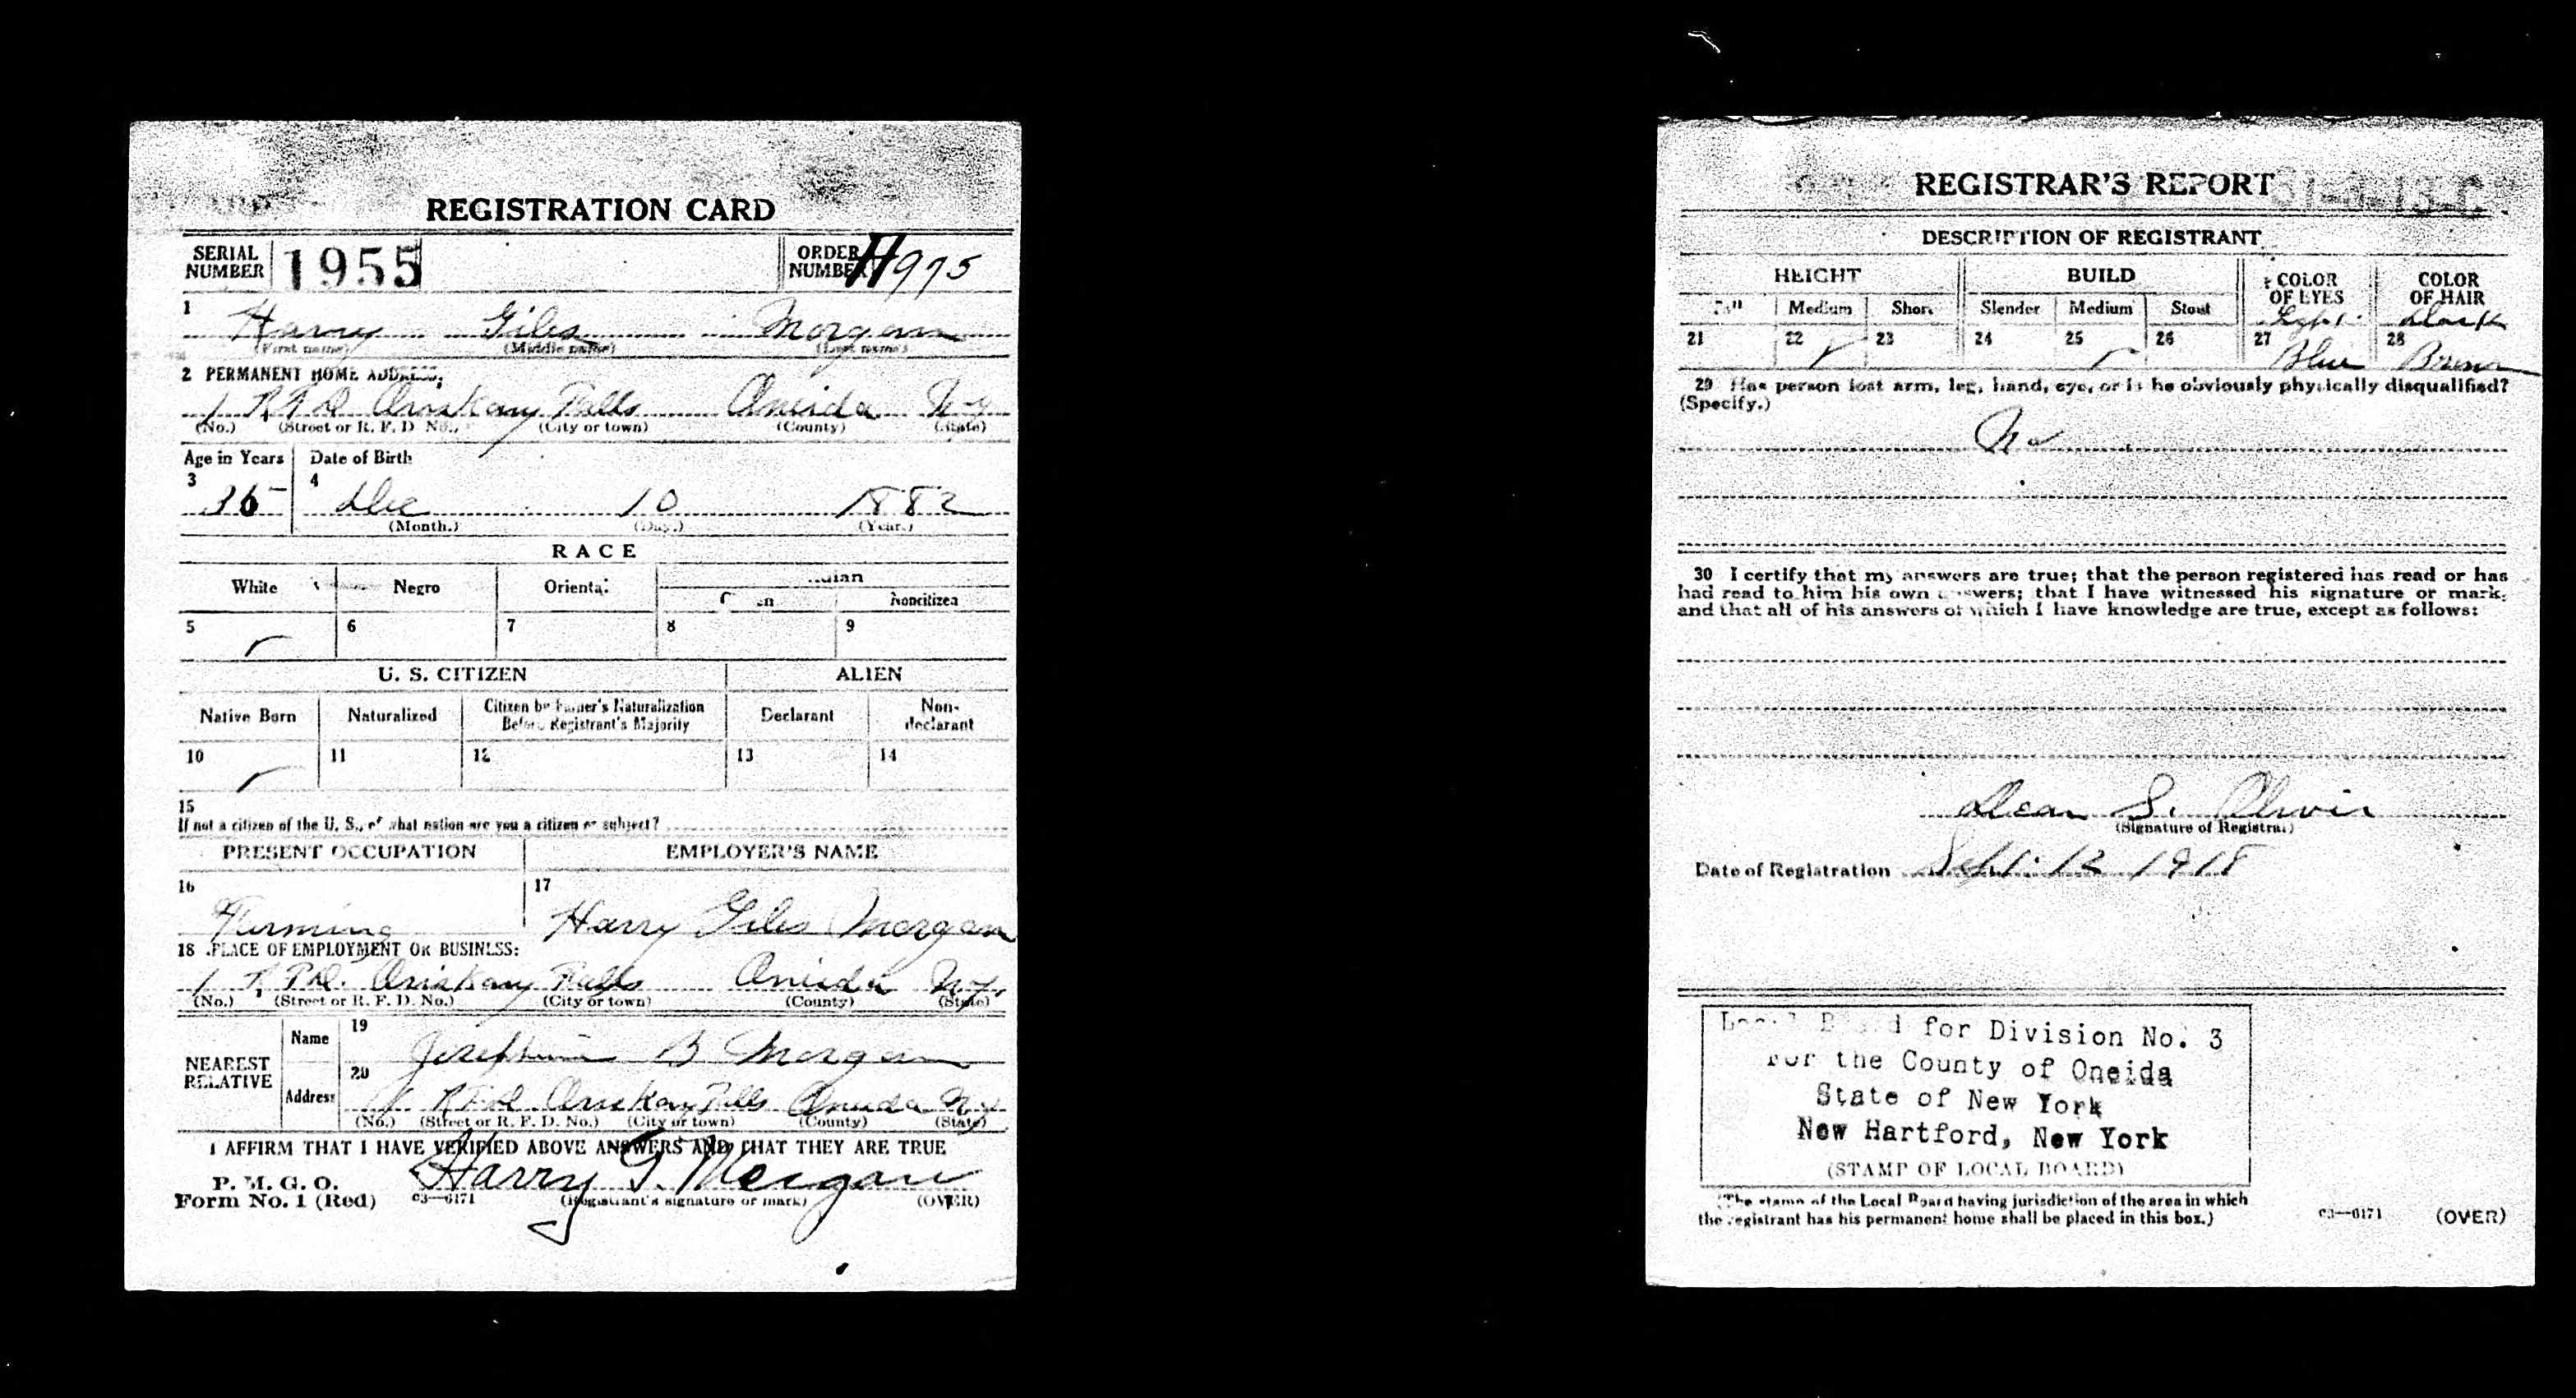 REGISTRATION CARD
SERIAL NUMBER 1955 ORDER NUMBER A975
1 Harry Giles Morgan
(First name) (Middle name) (Last name)
2 PERMANENT HOME ADDRESS:
1 R.F.D. Oriskany Falls Oneida N.Y.
(No.) (Street or R. F. D. No.) (City or town) (County) (State)
Age in Years Date of Birth
3 35 4 Dec 10 1882
(Month.) (Day.) (Year.)
RACE
White Negro Oriental Indian
Citizen Noncitizen
5 6 7 8 9
U. S. CITIZEN ALIEN
Native Born Naturalized Citizen by Father's Naturalization Before Registrant's Majority Declarant Non-declarant
10 11 12 13 14
15
If not a citizen of the U. S., of what nation are you a citizen or subject?
PRESENT OCCUPATION EMPLOYER'S NAME
16 Farming 17 Harry Giles Morgan
18 PLACE OF EMPLOYMENT OR BUSINESS:
1 R.F.D. Oriskany Falls Oneida N.Y.
(No.) (Street or R. F. D. No.) (City or town) (County) (State)
NEAREST RELATIVE
Name 19 Josephine B Morgan
Address 20 1 R.F.D. Oriskany Falls Oneida N.Y.
(No.) (Street or R. F. D. No.) (City or town) (County) (State)
I AFFIRM THAT I HAVE VERIFIED ABOVE ANSWERS AND THAT THEY ARE TRUE
P. M. G. O.
Form No. 1 (Red) 03—6171 Harry G. Morgan
(Registrant's signature or mark) (OVER)
REGISTRAR'S REPORT
DESCRIPTION OF REGISTRANT
HEIGHT BUILD COLOR OF EYES COLOR OF HAIR
Tall Medium Short Slender Medium Stout Light Dark
21 22 23 24 25 26 27 Blue 28 Brown
29 Has person lost arm, leg, hand, eye, or is he obviously physically disqualified?
(Specify.)
No
30 I certify that my answers are true; that the person registered has read or has
had read to him his own answers; that I have witnessed his signature or mark,
and that all of his answers of which I have knowledge are true, except as follows:
Dean S.
(Signature of Registrar)
Date of Registration Sept. 12 1918
Local Board for Division No. 3
For the County of Oneida
State of New York
New Hartford, New York
(STAMP OF LOCAL BOARD)
(The stamp of the Local Board having jurisdiction of the area in which
the registrant has his permanent home shall be placed in this box.)
03—6171 (OVER)